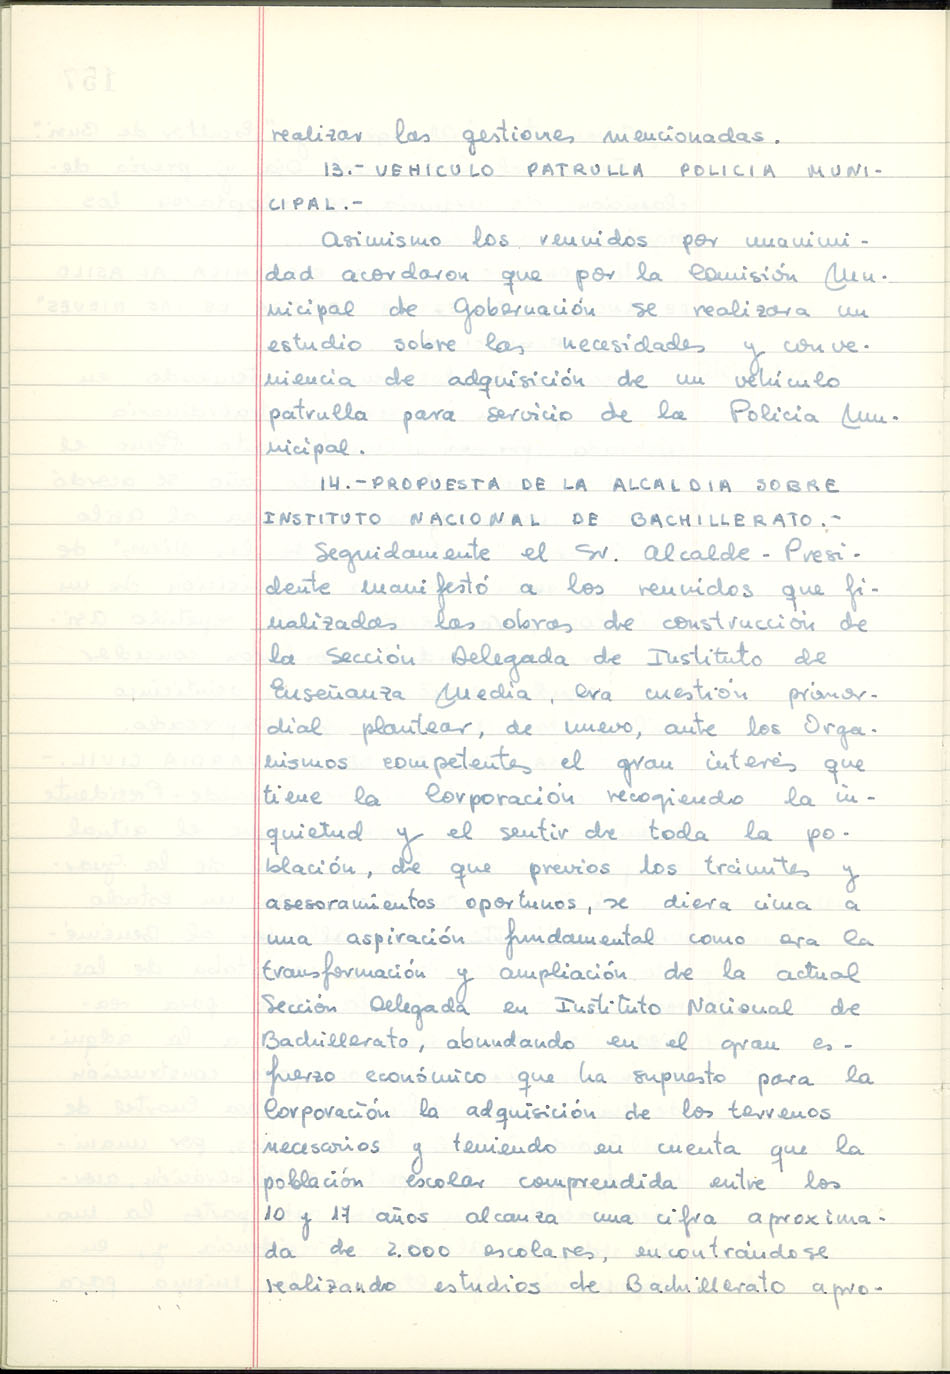 realizar las gestiones mencionadas.
13.- VEHICULO PATRULLA POLICIA MUNI-
CIPAL.-
Asimismo los reunidos por unanimi-
dad acordaron que por la Comisión Mu-
nicipal de Gobernación se realizara un
estudio sobre las necesidades y conve-
niencia de adquisición de un vehículo
patrulla para servicio de la Policia Mu-
nicipal.
14.- PROPUESTA DE LA ALCALDIA SOBRE
INSTITUTO NACIONAL DE BACHILLERATO.-
Seguidamente el Sr. Alcalde-Presi-
dente manifestó a los reunidos que fi-
nalizadas las obras de construcción de
la Sección Delegada de Instituto de
Enseñanza Media, era cuestión primor-
dial plantear, de nuevo, ante los Orga-
nismos competentes el gran interés que
tiene la Corporación recogiendo la in-
quietud y el sentir de toda la po-
blación, de que previos los trámites y
asesoramientos oportunos, se diera cima a
una aspiración fundamental como era la
transformación y ampliación de la actual
Sección Delegada en Instituto Nacional de
Bachillerato, abundando en el gran es-
fuerzo económico que ha supuesto para la
Corporación la adquisición de los terrenos
necesarios y teniendo en cuenta que la
población escolar comprendida entre los
10 y 17 años alcanza una cifra aproxima-
da de 2.000 escolares, encontrándose
realizando estudios de Bachillerato apro-